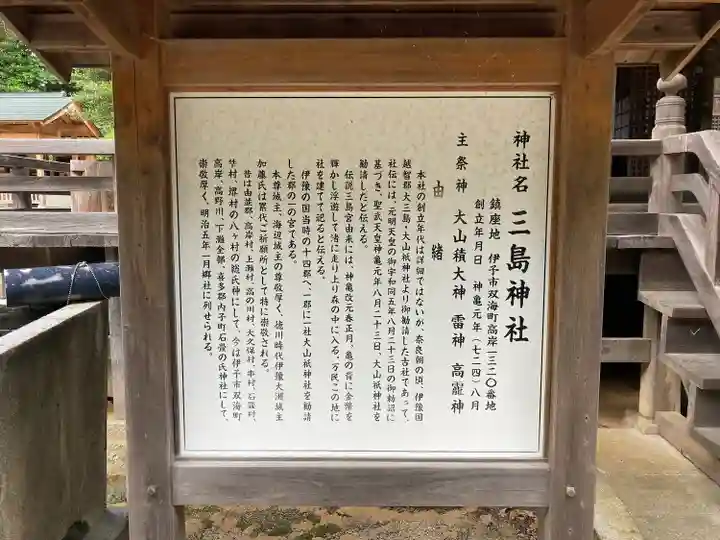 神社名 三島神社
鎮座地 伊予市双海町高岸一三二〇番地
創立年月日 神亀元年(七二四)八月
主祭神 大山積大神 雷神 高龗神
由緒
本社の創立年代は詳細ではないが、奈良朝の頃、伊豫国
越智郡大三島・大山祇神社より御勧請した古社であって、
社伝には、元明天皇の御宇和同五年八月二十三日の御勅詔に
基づき、聖武天皇神亀元年八月二十三日、大山祇神社を
勧請したと伝える。
伝説三島宮由来には、神亀改元春正月、亀の背に金幣を
輝かし浮遊して渚に走り上り森の中に入る。万民この地に
社を建てて祀ると伝える。
伊豫の国当時の十四郡へ、一郡に一社大山祇神社を勧請
した郡の一の宮である。
本尊城主、海辺城主の尊敬厚く、徳川時代伊豫大洲城主
加藤氏は累代ご祈願所として特に崇敬される。
昔は由並郡、高岸村、上灘村、高の川村、大久保村、串村、石畳村、
村、壻村の八ヶ村の総氏神にして、今は伊予市双海町、
高岸、高野川、下灘全部、喜多郡内子町石畳の氏神社にして、
崇敬厚く、明治五年一月郷社に列せられる。